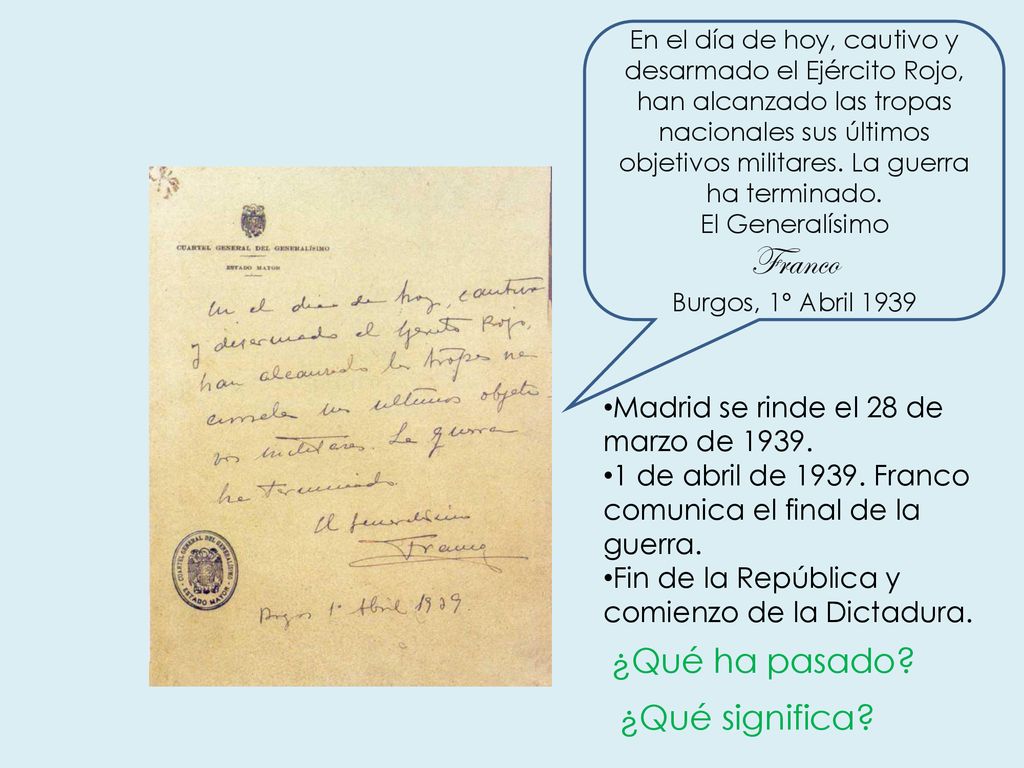 En el día de hoy, cautivo y
desarmado el Ejército Rojo,
han alcanzado las tropas
nacionales sus últimos
objetivos militares. La guerra
ha terminado.
El Generalísimo
Franco
Burgos, 1º Abril 1939
CUARTEL GENERAL DEL GENERALÍSIMO
ESTADO MAYOR
En el día de hoy, cautivo
y desarmado el Ejército Rojo,
han alcanzado las tropas na-
cionales sus ultimos objeti-
vos militares. La guerra
ha terminado.
El Generalísimo
Franco
Burgos 1º Abril 1939.
CUARTEL GENERAL DEL GENERALÍSIMO
ESTADO MAYOR
•Madrid se rinde el 28 de
marzo de 1939.
•1 de abril de 1939. Franco
comunica el final de la
guerra.
•Fin de la República y
comienzo de la Dictadura.
¿Qué ha pasado?
¿Qué significa?